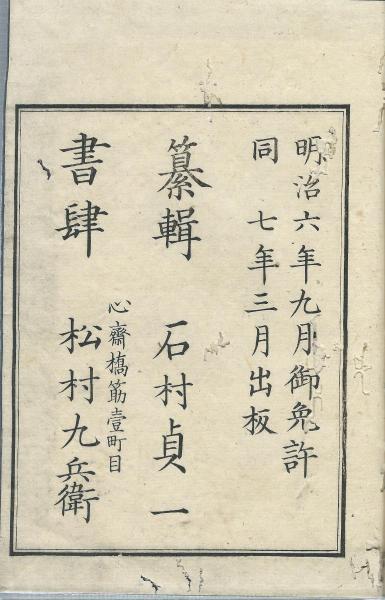 明治六年九月御免許
同 七年三月出板
纂輯 石村貞一
心齋橋筋壹町目
書肆 松村九兵衛